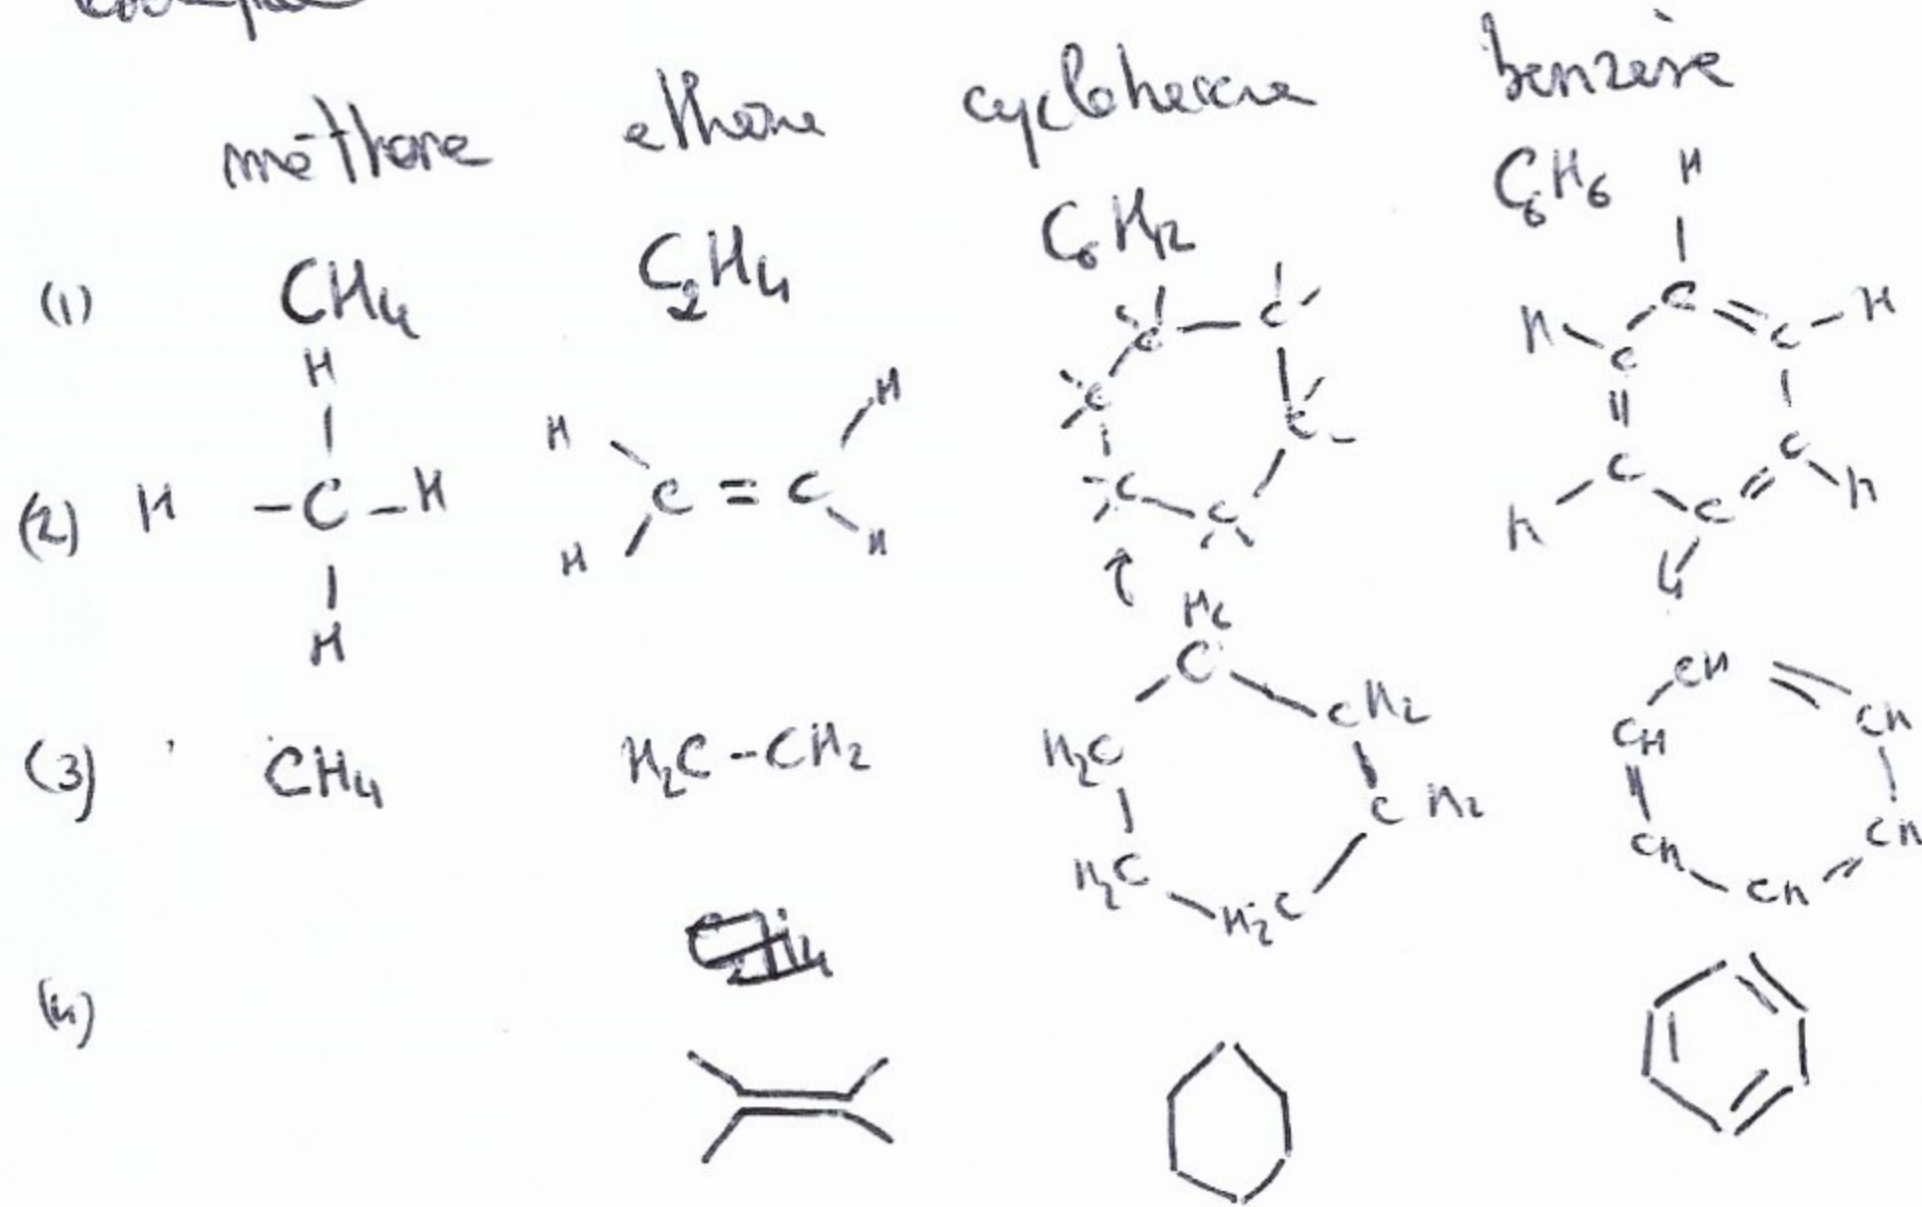 méthane ethane cyclohexane benzène
(1) CH4 C2H4 C6H12 C6H6
(2)
H
H - C - H
H
H H
C = C
H H
C C
C C
C C
H
H C H
C C
C C
H C H
(3) CH4 H2C - CH2
H2
C
H2C CH2
H2C CH2
H2C
CH
CH CH
CH CH
CH
(4)